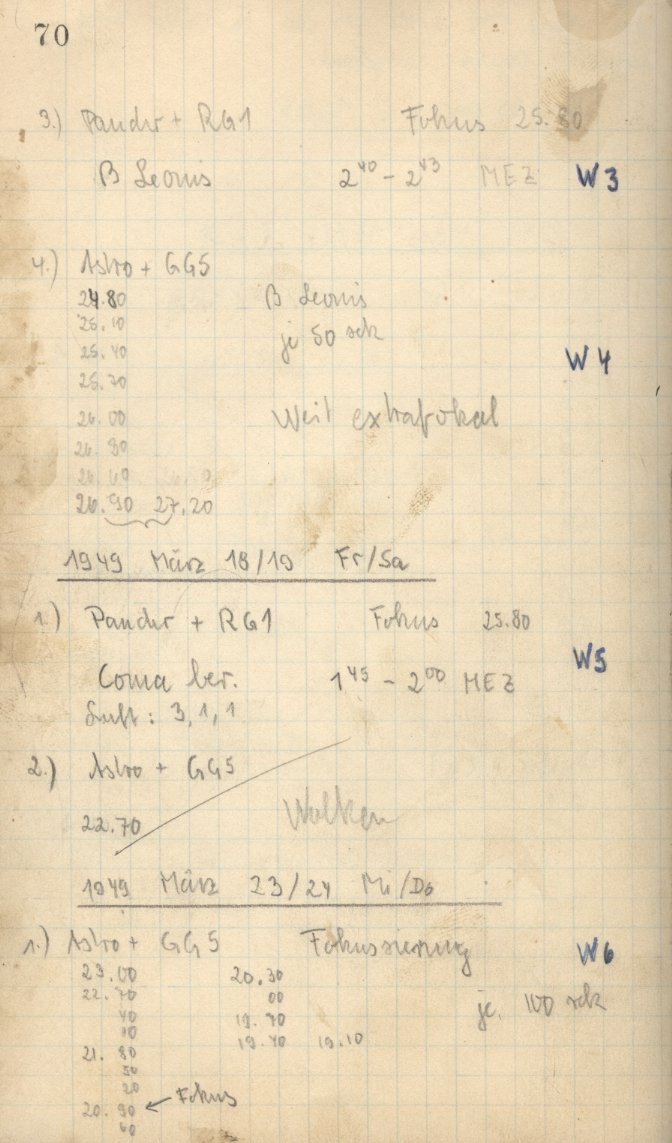 70
3.) Panchr + RG1 Fokus 25.80
β Leonis 2⁴⁰ - 2⁴³ MEZ W3
4.) Astro + GG5
24.80 β Leonis
25.10 je 50 sek
25.40 W4
25.70
26.00 Weit extrafokal
26.30
26.60
26.90 27.20
1949 März 18/19 Fr/Sa
1.) Panchr + RG1 Fokus 25.80
W5
Coma ber. 1⁴⁵ - 2⁰⁰ MEZ
Luft : 3, 1, 1
2.) Astro + GG5
22.70 Wolken
1949 März 23/24 Mi/Do
1.) Astro + GG5 Fokussierung W6
23.00 20.30
22.70 00 je 100 sek
40 19.70
10 19.40 19.10
21.80
50
20
20.90 ← Fokus
60